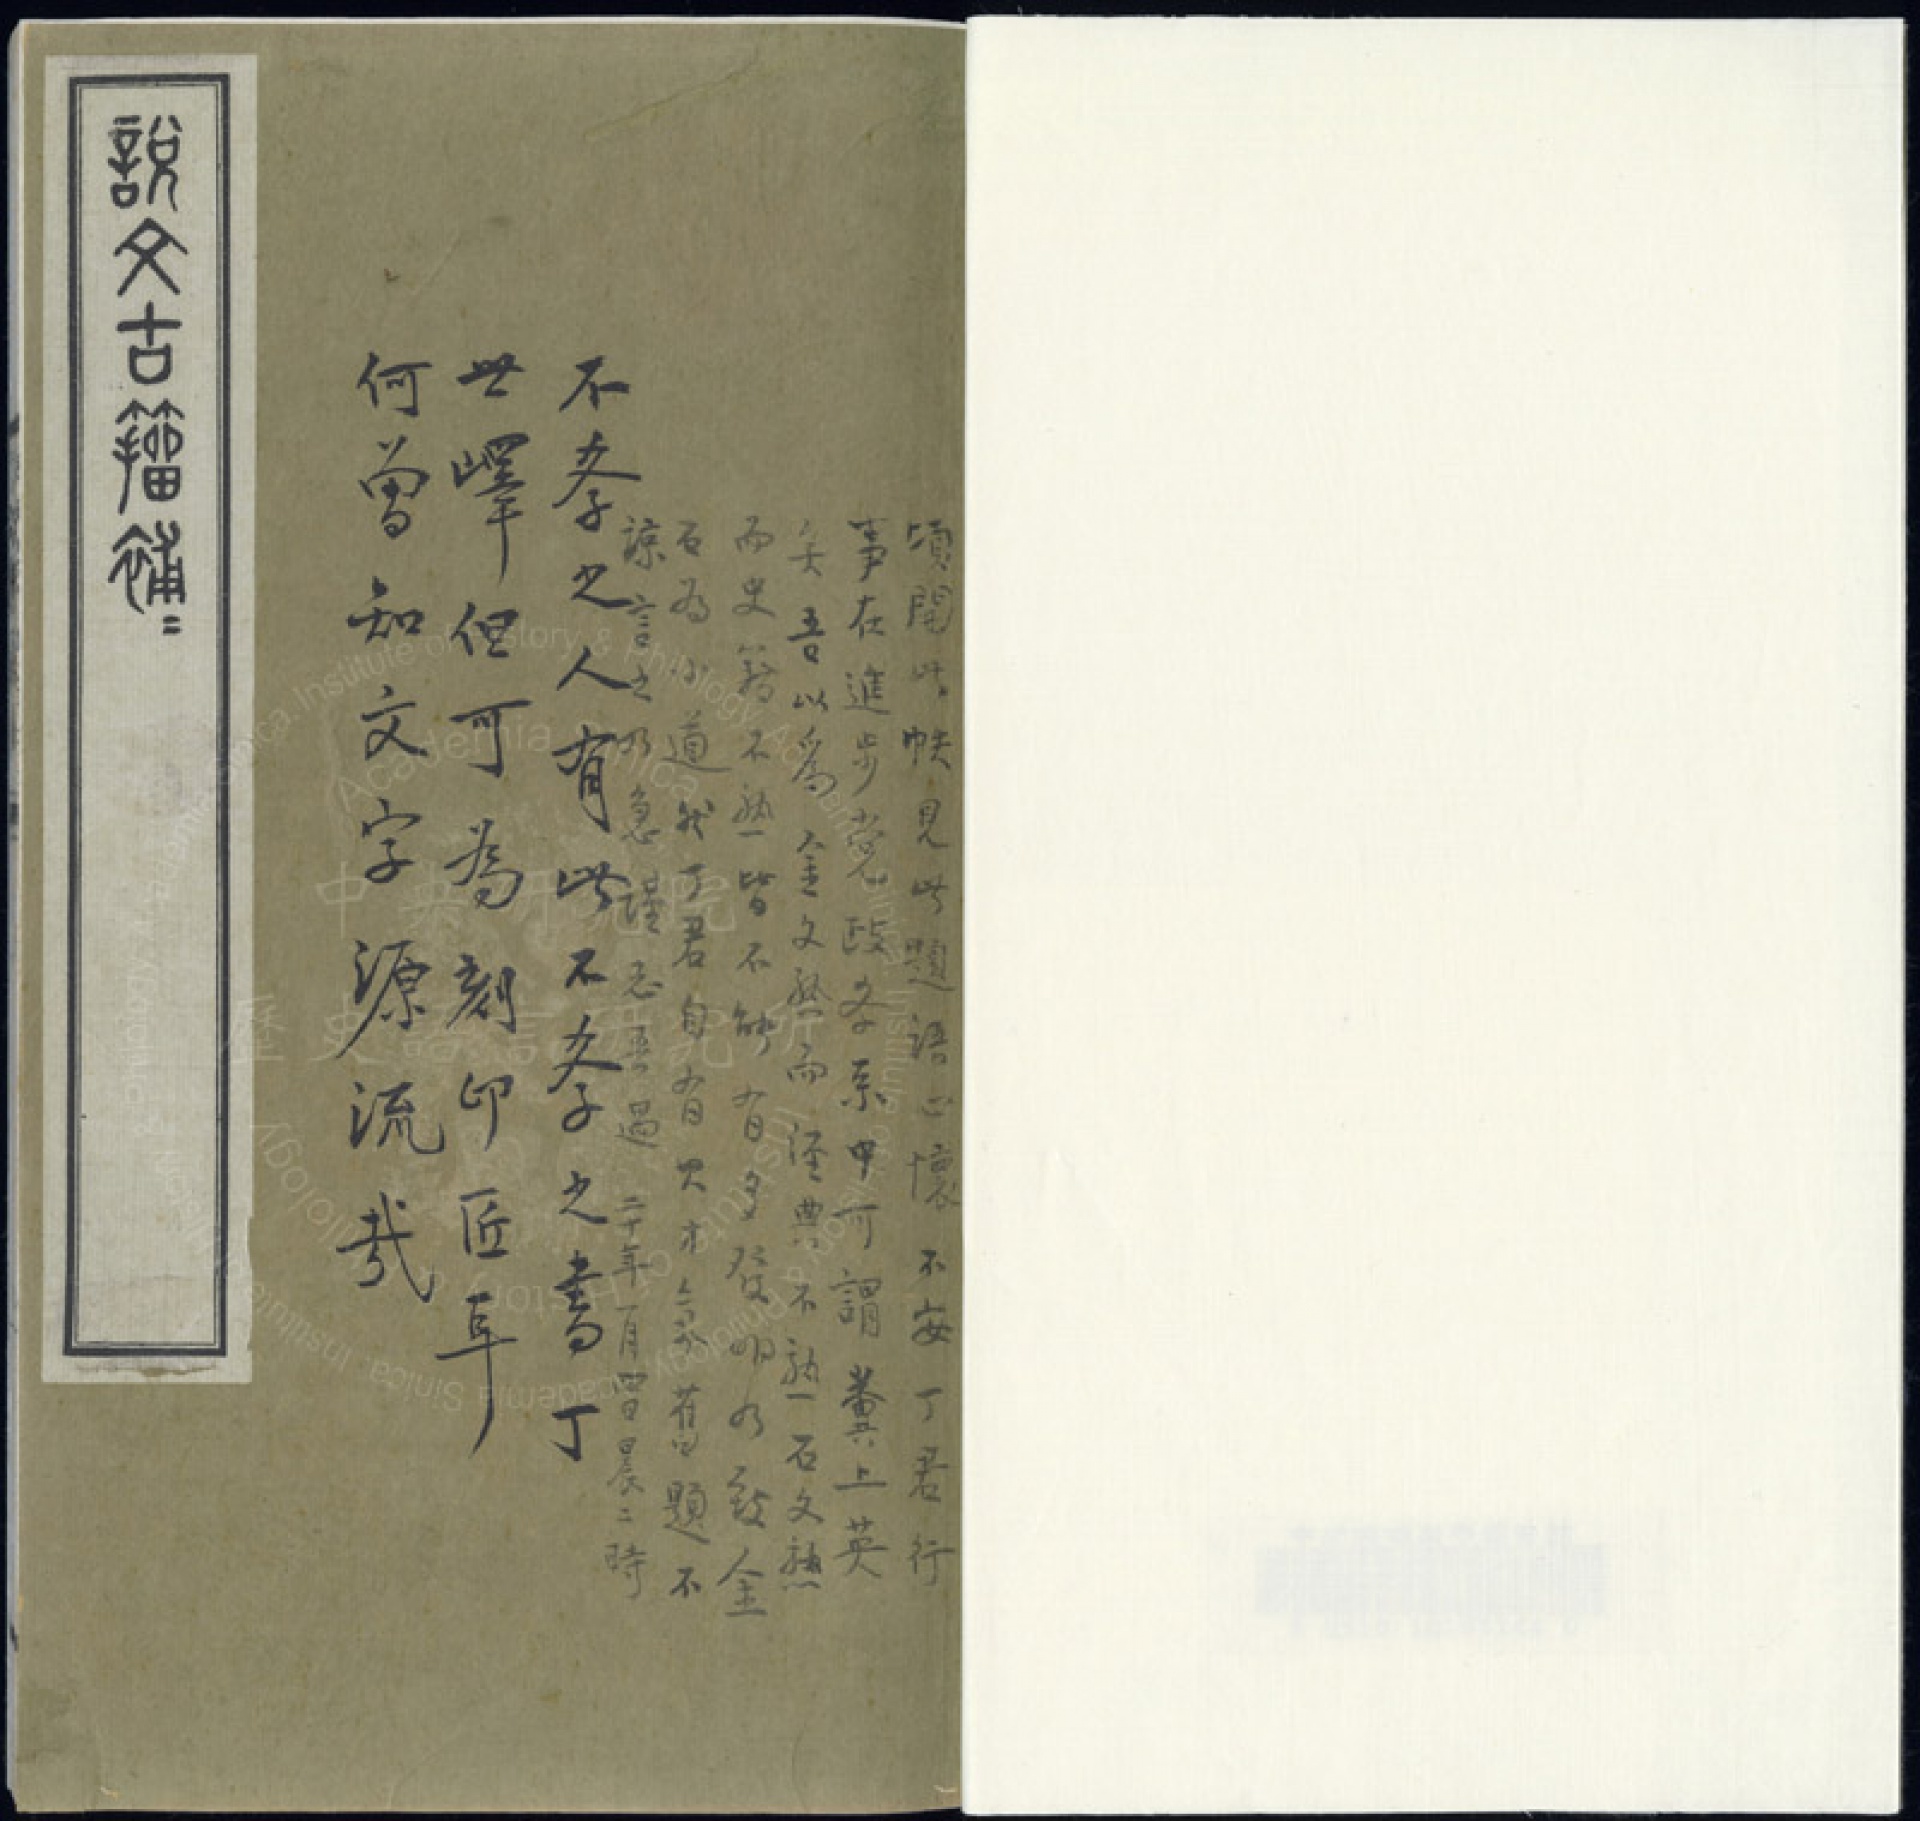 說文古籀補二
頃閱此帙見此題語心懷不安丁君行
事在進步党政客系中可謂糞上英
矣吾以為金文熟而經典不熟石文熟
而史籍不熟皆不能有多發明乃致金
石為小道然丁君自有其才氣舊題不
諒言之乃急謹忘吾過 二十年一月四日晨二時
不孝之人有此不孝之書丁
世嶧但可為刻印匠耳
何曾知文字源流哉
中央研究院
歷史語言研究所
Institute of History & Philology, Academia Sinica